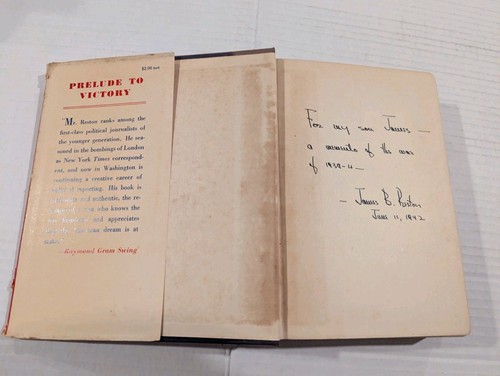 $2.00 net
PRELUDE TO
VICTORY
"Mr. Reston ranks among the
first-class political journalists of
the younger generation. He sea-
soned in the bombings of London
as New York Times correspond-
ent, and now in Washington is
continuing a creative career of
reporting. His book is
and authentic, the re-
who knows the
and appreciates
dream is at
—Raymond Gram Swing
For my son James —
a memento of the war
of 1939-4 —
— James B. Reston
June 11, 1942